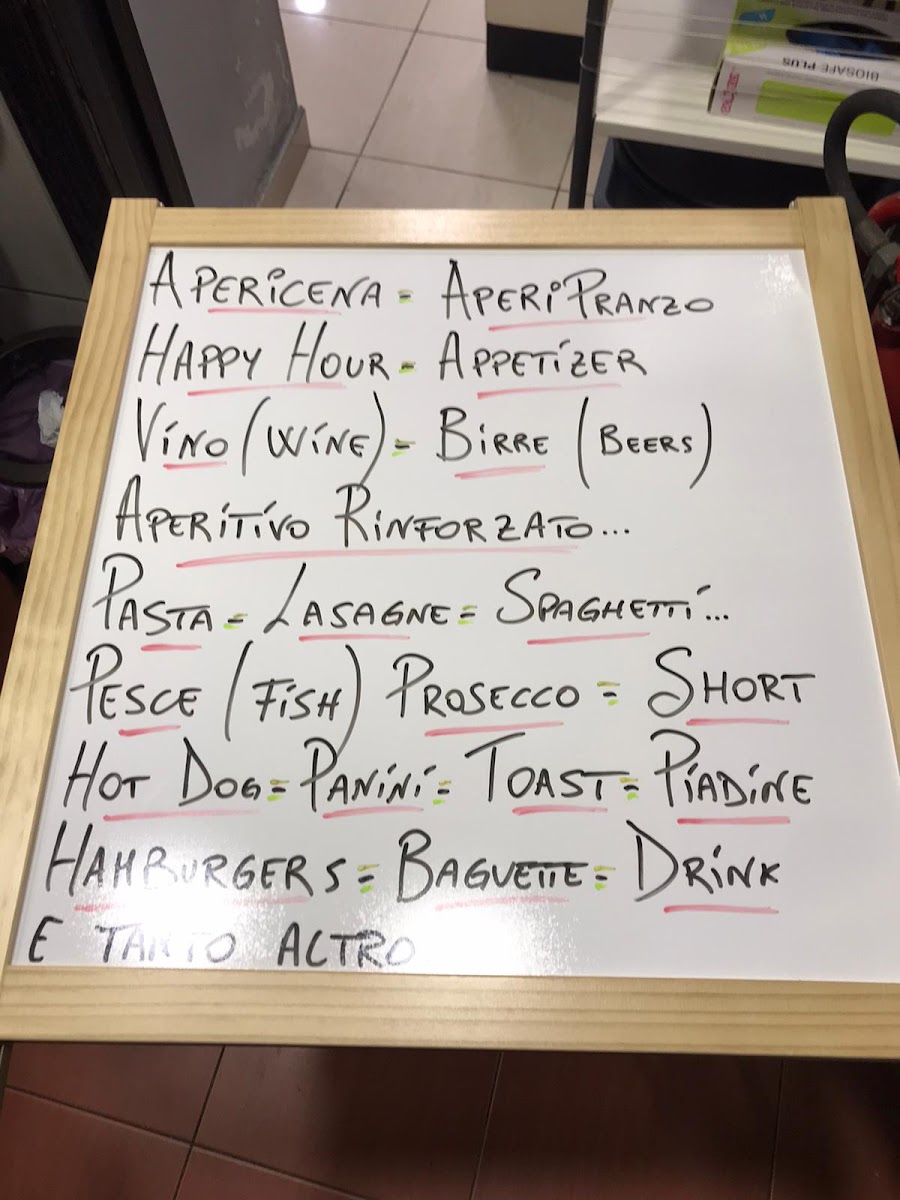 BIOSAFE PLUS
APERICENA = APERIPRANZO
HAPPY HOUR = APPETIZER
VINO (WINE) = BIRRE (BEERS)
APERITIVO RINFORZATO...
PASTA = LASAGNE = SPAGHETTI...
PESCE (FISH) PROSECCO = SHORT
HOT DOG = PANINI = TOAST = PIADINE
HAMBURGERS = BAGUETTE = DRINK
E TANTO ALTRO